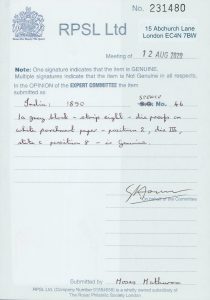 No. 231480
RPSL Ltd
15 Abchurch Lane
London EC4N 7BW
Meeting of 12 AUG 2020
Note: One signature indicates that the item is GENUINE.
Multiple signatures indicate that the item is Not Genuine in all respects.
In the OPINION of the EXPERT COMMITTEE the item
submitted as
SPENCE
India: 1890 S.G. No. 46
1a grey black - strip eight - die proofs on
white parchment paper - position 2, die III,
state c position 8 - is Genuine.
On behalf of the Committee
Submitted by
RPSL Ltd, (Company Number 01984556) is a wholly owned subsidiary of
The Royal Philatelic Society London